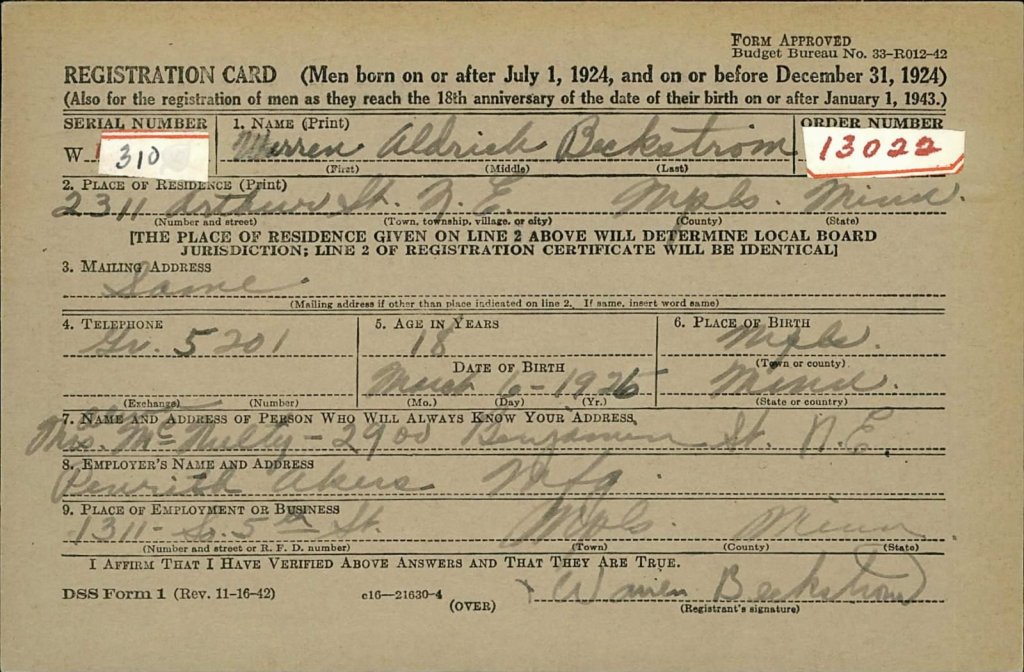 FORM APPROVED
Budget Bureau No. 33-R012-42
REGISTRATION CARD (Men born on or after July 1, 1924, and on or before December 31, 1924)
(Also for the registration of men as they reach the 18th anniversary of the date of their birth on or after January 1, 1943.)
SERIAL NUMBER 1. NAME (Print) ORDER NUMBER
W 310 Warren Aldrich Beckstrom 13022
(First) (Middle) (Last)
2. PLACE OF RESIDENCE (Print)
2311 Arthur St. N.E. Mpls. Minn.
(Number and street) (Town, township, village, or city) (County) (State)
[THE PLACE OF RESIDENCE GIVEN ON LINE 2 ABOVE WILL DETERMINE LOCAL BOARD
JURISDICTION; LINE 2 OF REGISTRATION CERTIFICATE WILL BE IDENTICAL]
3. MAILING ADDRESS
Same
(Mailing address if other than place indicated on line 2. If same, insert word same)
4. TELEPHONE 5. AGE IN YEARS 6. PLACE OF BIRTH
Gr. 5201 18 Mpls.
DATE OF BIRTH (Town or county)
March 6-1926 Minn.
(Exchange) (Number) (Mo.) (Day) (Yr.) (State or country)
7. NAME AND ADDRESS OF PERSON WHO WILL ALWAYS KNOW YOUR ADDRESS
Mrs. McNulty - 2900 Benjamin St. N.E.
8. EMPLOYER'S NAME AND ADDRESS
Akers Mfg
9. PLACE OF EMPLOYMENT OR BUSINESS
1311- So. 5th St. Mpls. Minn
(Number and street or R. F. D. number) (Town) (County) (State)
I AFFIRM THAT I HAVE VERIFIED ABOVE ANSWERS AND THAT THEY ARE TRUE.
DSS Form 1 (Rev. 11-16-42) c16—21630-4 x Warren Beckstrom
(OVER) (Registrant's signature)